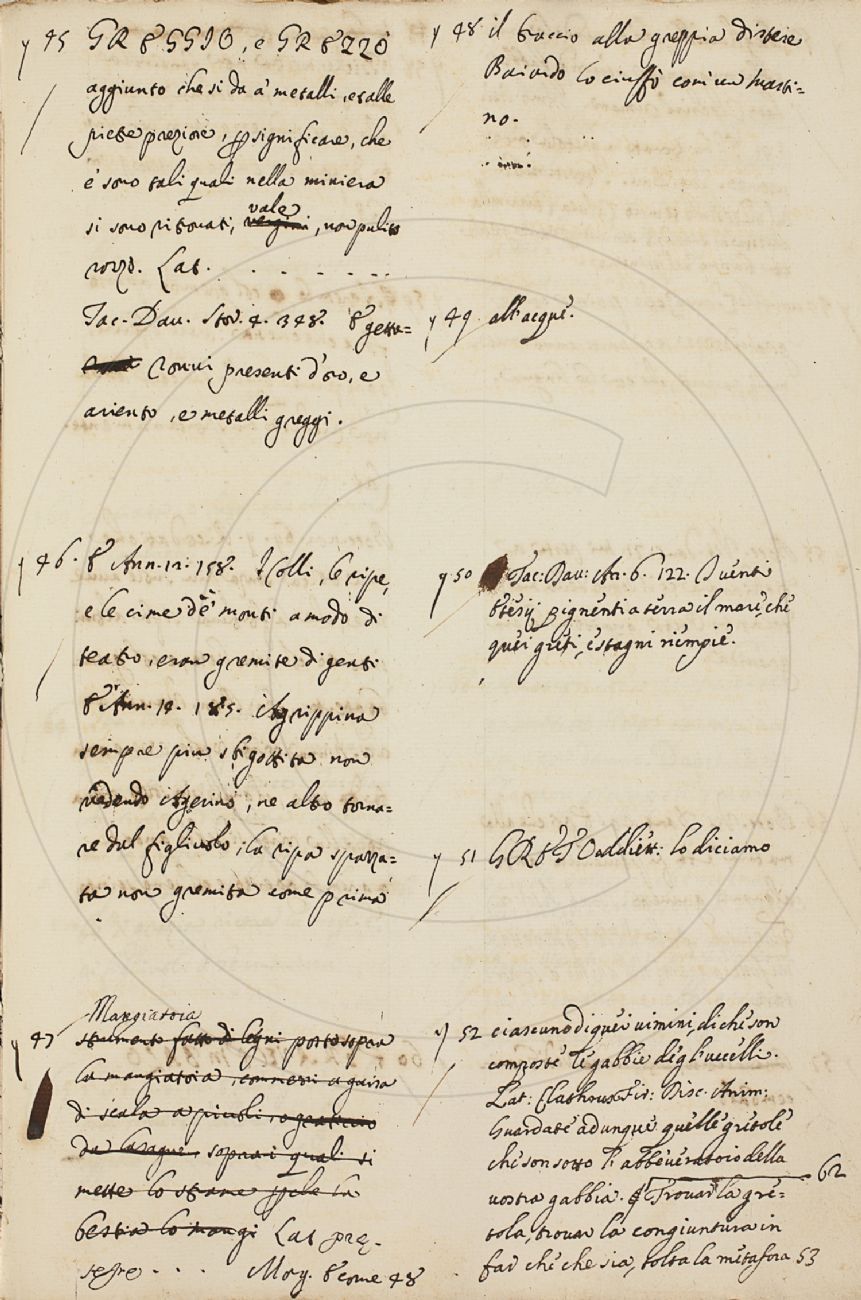 y 45 GREGGIO, e GREZZO
aggiunto che si da a' metalli, et alle
pietre preziose, per significare, che
e' sono tali quali nella miniera
si sono ritrovati, vale vergini, non pulito
rozzo. Lat. . . - . - . .
Tac. Dav. Stor. 4. 348. E getta=
ronvi presenti d'oro, e
ariento, e metalli greggi.
y 46. E Ann. 12. 158. I Colli, le ripe,
e le cime de' monti a modo di
teatro, eran gremite di genti
E Ann. 14. 185. Agrippina
sempre piu sbigottita non
vedendo Agerino, ne altro torna=
re dal figliuolo; la ripa spazza=
ta non gremita come prima
Mangiatoia
y 47 strumento fatto di legni posto sopra
la mangiatoia, commessi a guisa
di scala a piuoli, o graticcio
da lasagne, sopra i quali si
mette lo strame perche la
bestia lo mangi Lat. pre-
sepe . . . Morg. E come 48
y 48 il braccio alla greppia distese
Baiardo lo ciuffò com'un masti=
no.
y 49 all'acque.
y 50 Tac: Dav: An. 6. 122. I venti
Etesij pignenti a terra il mare, che
quei greti, e stagni riempie.
y 51 GRETO addiett: lo diciamo
y 52 ciascuno di quei vimini, di che son
composte le gabbie degl'uccelli.
Lat: Clathrus Fir: Disc. Anim:
Guardate adunque quelle gretole
che son sotto l'abbeveratoio della
vostra gabbia. Trovar la gre= 62
tola, trovar la congiuntura in
far che che sia, tolta la metafora 53